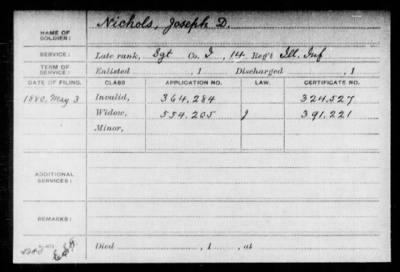 NAME OF SOLDIER: Nichols, Joseph D.
SERVICE: Late rank, Sgt Co. I, 14 Reg't Ill. Inf
TERM OF SERVICE: Enlisted , 1 Discharged , 1
DATE OF FILING. CLASS APPLICATION NO. LAW. CERTIFICATE NO.
1880, May 3 Invalid, 364,284 324,527
Widow, 554,205 391,221
Minor,
ADDITIONAL SERVICES:
REMARKS:
Died , 1 , at